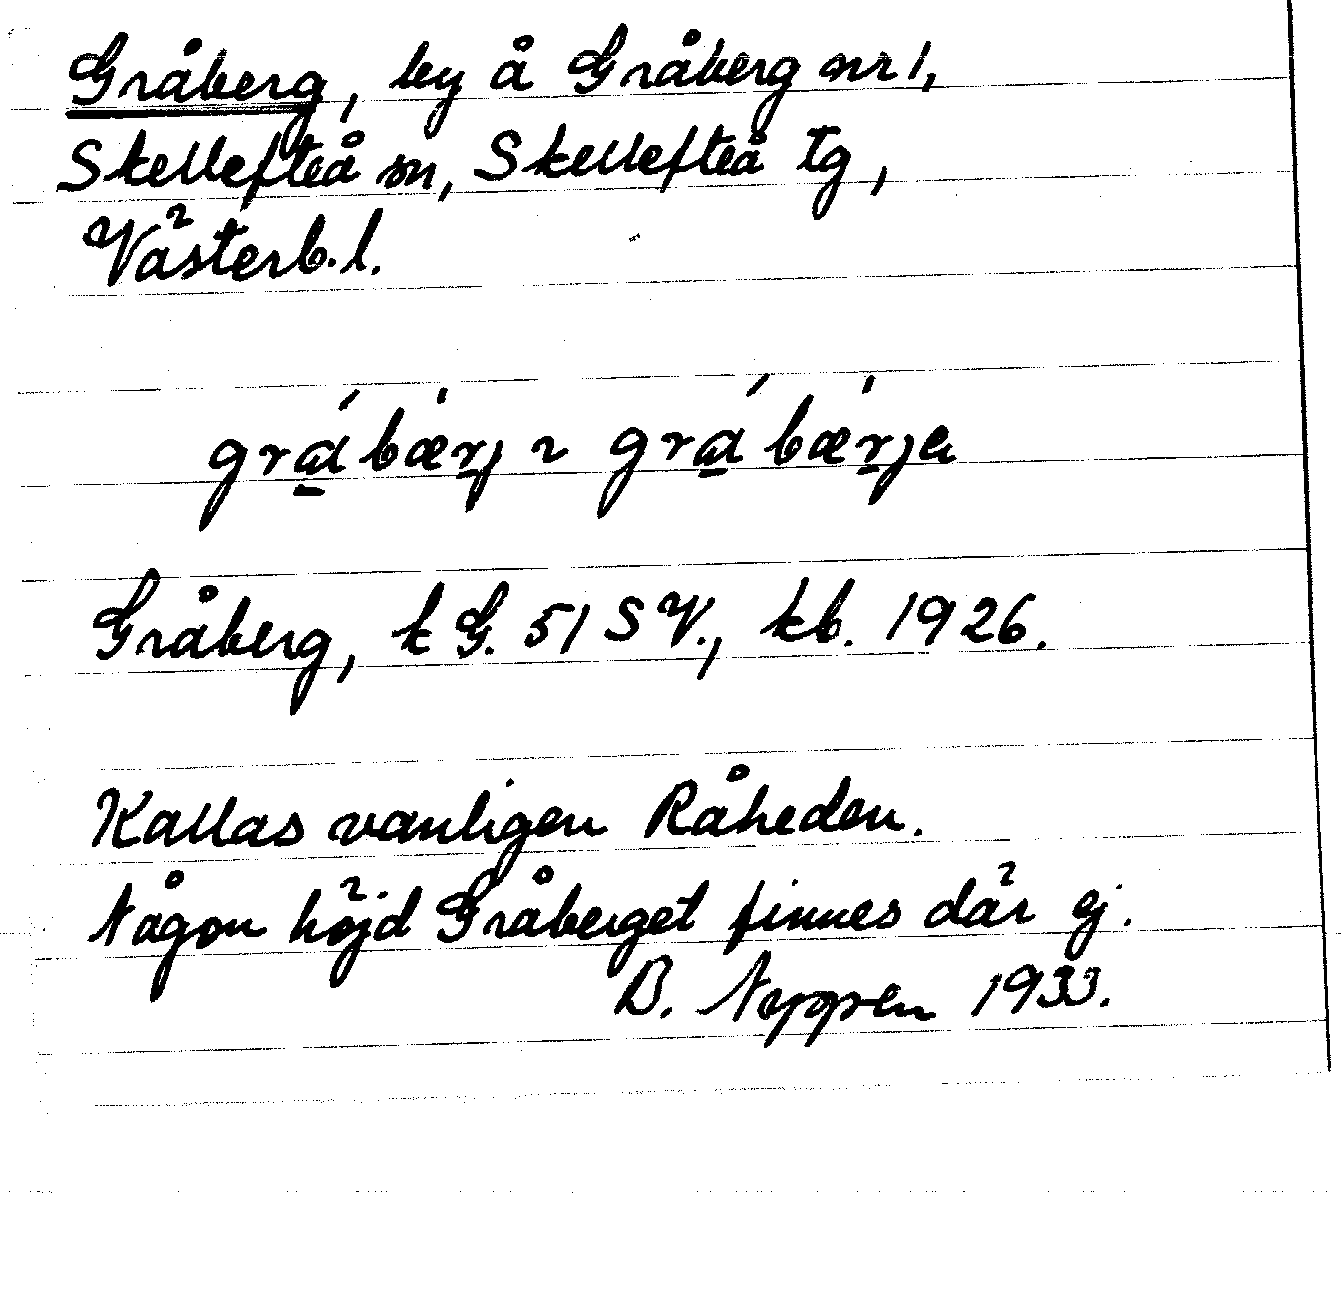 Gråberg, by å Gråberg nr 1,
Skellefteå sn, Skellefteå tg,
Västerb.l.
Gråberg, k G. 51 S V., kb. 1926.
Kallas vanligen Råheden.
Någon höjd Gråberget finnes där ej.
B. Neppen 1933.